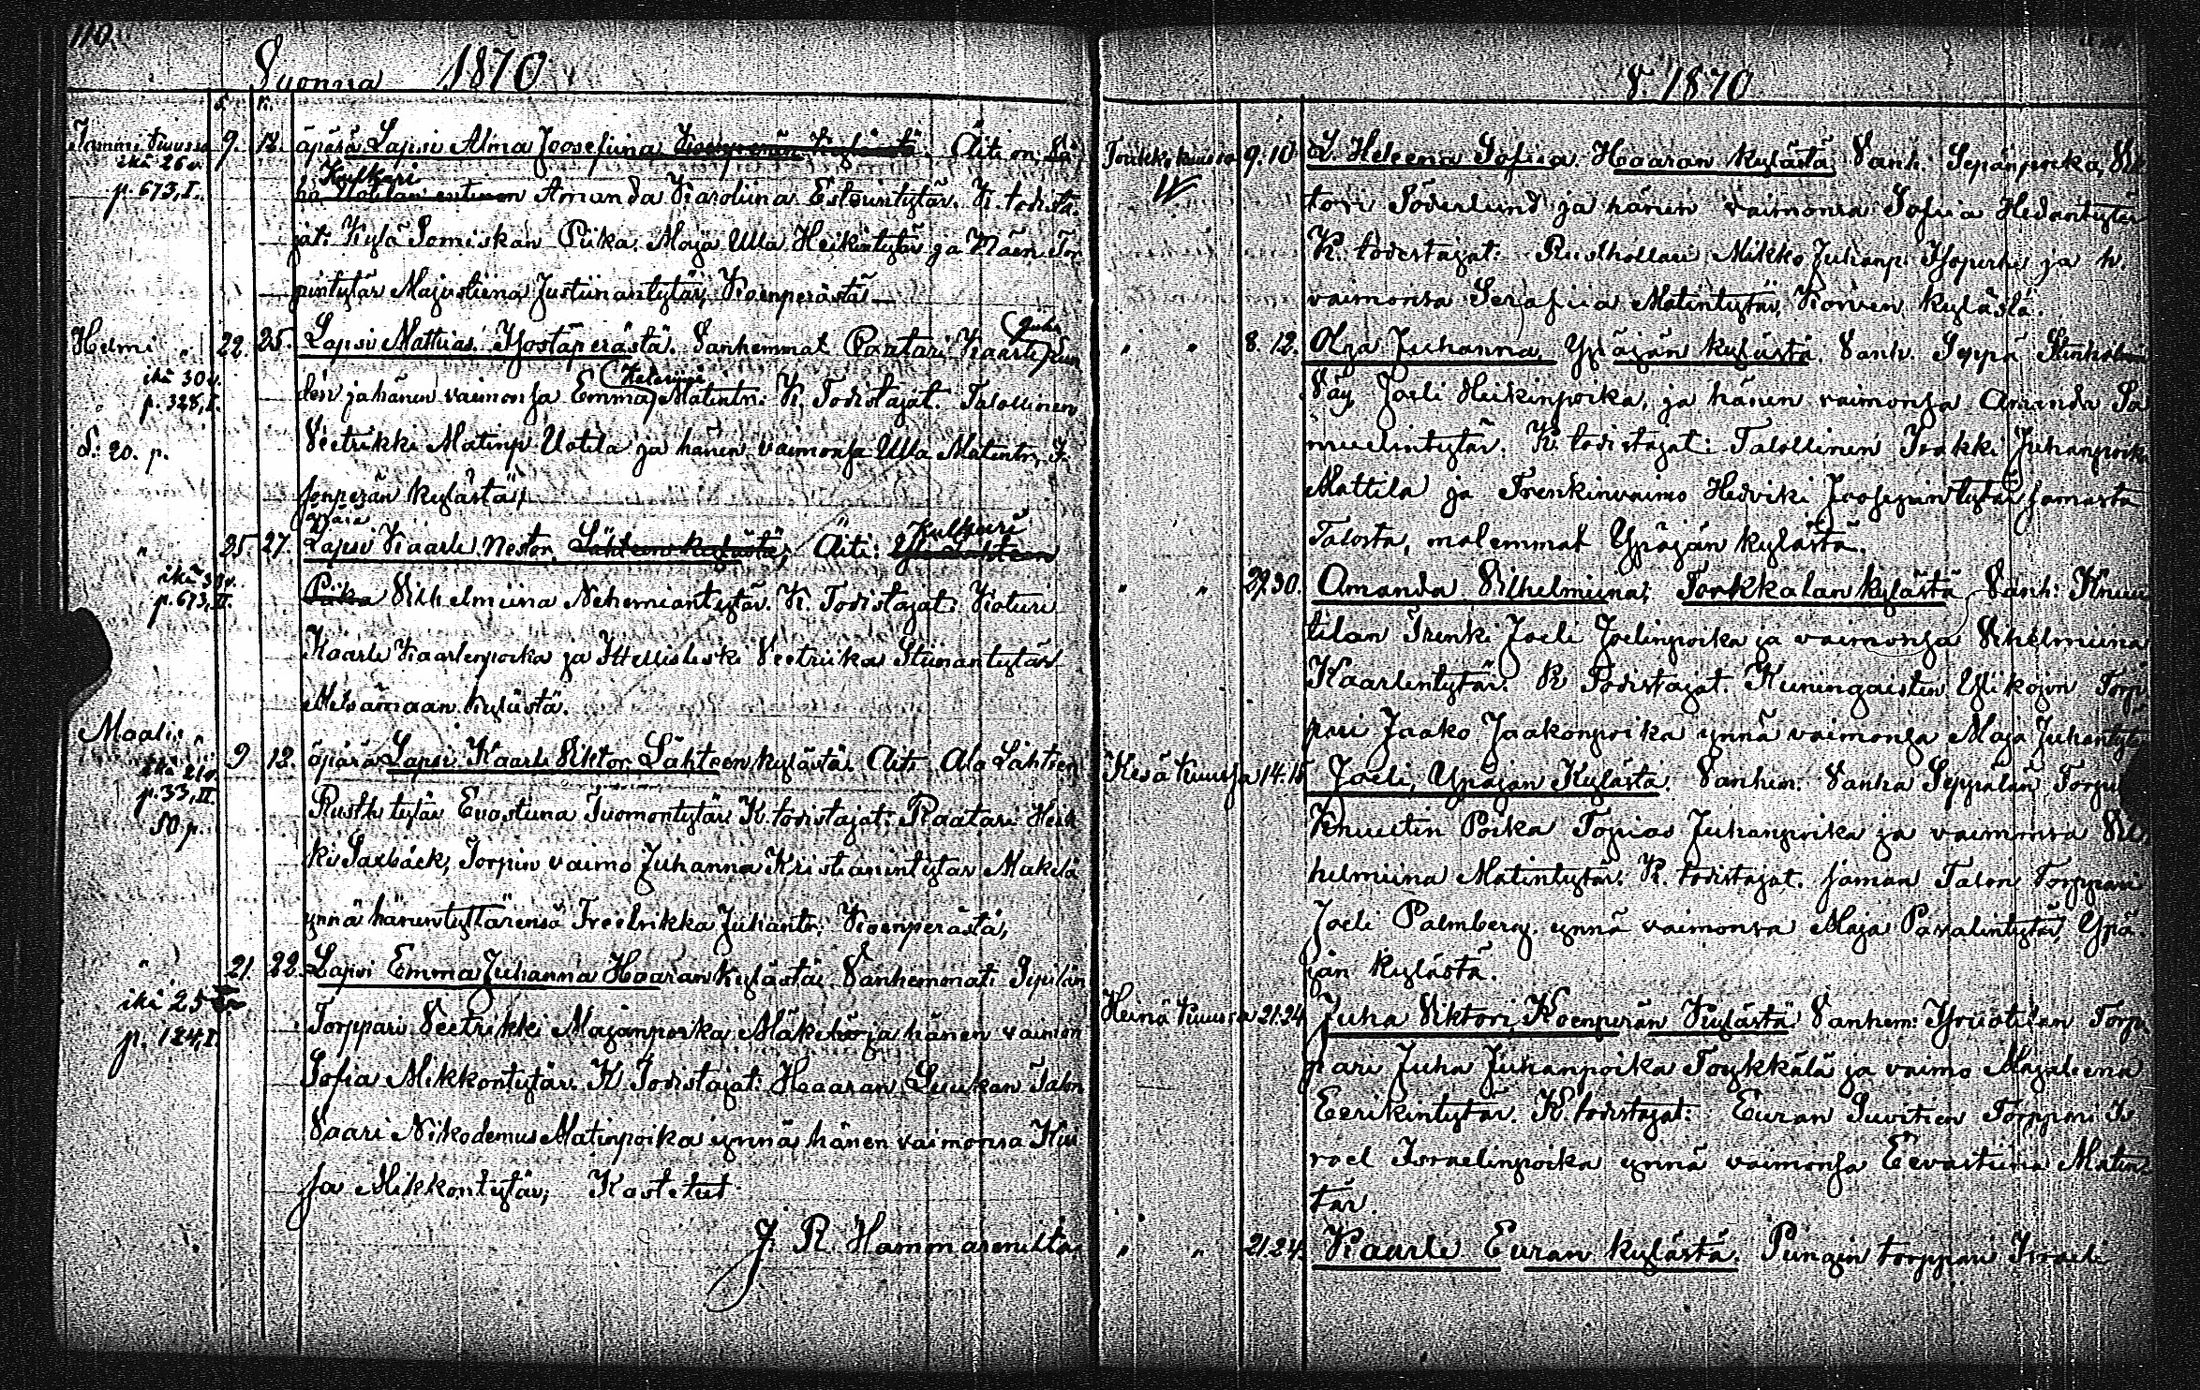 110.
Vuonna 1870
s. k.
Tammi kuussa 9. 12. äpärä Lapsi Alma Joosefiina Koenperän Kylästä. Äiti on
ikä 26 v. Kulkari
p. 673, I. Amanda Karoliina Esterintytär. K. todista-
jat: Kylä Somiskan Piika Maja Ulla Heikintytär ja
pintytär Majastiina Justiinantytär Koenperästä
Helmi „ 22. 25. Lapsi Mattias. Isostaperästä. Vanhemmat Räätäri Kaarle Juha
ikä 30 v. ja hänen vaimonsa Emma Matintr: K. Todistajat. Talollinen
p. 328, I.
S: 20. p. Veetrikki Matinp. Uotila ja hänen vaimonsa Ulla Matintr, I-
sonperän kylästä,
äpärä
„ 25. 27. Lapsi Kaarle Nestor, Lähteen kylästä; Äiti: Kulkari
ikä 30 v. Piika Vilhelmiina Nehemiantytär. K. Todistajat:
p. 673, II.
Kaarle Kaarlenpoika ja Veetriika Stiinantytär
Metsämaan kylästä.
Maalis „ 9 12. äpärä Lapsi Kaarle Viktor Lähteen kylästä. Äiti Ala Lähteen
ikä 21 v.
p. 33, II. Rusth tytär Evastiina Tuomontytär K. todistajat: Räätäri Heik-
50 p.
ki Saxbäck, Torpin vaimo Juhanna Kristianintytär Mäkelä
ynnä hänen tyttärensä Freedrikka Juhantr: Koenperästä,
„ 21. 22. Lapsi Emma Juhanna Haaran kylästä. Vanhemmat: Sipilän
ikä 25
p. 124, I Torppari Veetrikki Majanpoika ja hänen vaimon
Sofia Mikkontytär. K. Todistajat: Haaran Luukan Talon
Vaari Nikodemus Matinpoika ynnä hänen vaimonsa
sa Mikkontytär; Kastetut
J. R. Hammarén
V. 1870
Toukkokuussa 9. 10 L. Heleena Sofiia. Haaran kylästä Vanh: Sepänpoika, Vik
tori Söderlund ja hänen vaimonsa Sofiia Hedantytär
K. todistajat: Rusthollari Mikko Juhanp: Isoperhe ja h.
vaimonsa Serafiia Matintytär, Korven kylästä.
„ „ 8. 12. Olga Juhanna Ypäjän kylästä. Vanh. Seppä
Väy Joeli Heikinpoika, ja hänen vaimonsa Amanda Sa
muelintytär. K. todistajat: Talollinen Iisakki Juhanpoika
Mattila ja Trenkinvaimo Hedviki Joosepintytär samasta
Talosta, molemmat Ypäjän kylästä.
„ „ 29. 30. Amanda Vilhelmiina; Torkkalan kylästä Vanh: Knuu
tilan Trenki Joeli Joelinpoika ja vaimonsa Vilhelmiina
Kaarlentytär. K. Todistajat. Kuningaisten Ylikojon Torp
pari Jaako Jaakonpoika ynnä vaimonsa Maja Juhantytr
Kesä kuussa 14. 15 Joeli, Ypäjän Kylästä. Vanhem: Vanha Seppälän Torpp
Knuutin Poika Topias Juhanpoika ja vaimonsa Vil
helmiina Matintytär. K. todistajat. saman Talon Torppari
Joeli Palmberg ynnä vaimonsa Maja Paavalintytär, Ypä-
jän kylästä.
Heinä kuussa 21. 24 Juha Viktori, Koenperän Kylästä Vanhem: Isouotilan Torp-
pari Juha Juhanpoika Torkkälä ja vaimo Majaleena
Eerikintytär. K. todistajat: Euran Torppari Is
rael Israelinpoika ynnä vaimonsa Eevastiina Matin
tär.
„ „ 21 24. Kaarle Euran kylästä. Pungin torppari Israeli